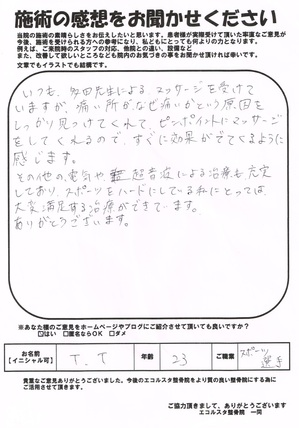 施術の感想をお聞かせください
当院の施術の素晴らしさをお伝えしたいと思います。患者様が実際受けて頂いた率直なご意見が
今後、施術を受けられる方への参考になり、私どもにとっても何よりの力となります。
例えば、ご来院時のスタッフの対応、他院との違い、設備など
また、改善して欲しいところなども院内のお気づきの事をお聞かせ頂ければ幸いです。
文章でもイラストでも結構です。
いつも、多田先生による マッサージを受けて
いますが、痛い所が、なぜ痛いかという原因を
しっかり見つけてくれて、ピンポイントにマッサージ
をしてくれるので、すぐに効果がでてくるように
感じます。
その他の、電気や 超音波による治療も充実
しており、スポーツをハードにしている私にとっては、
大変満足する治療ができています。
ありがとうございます。
※あなた様のご意見をホームページやブログにご紹介させて頂いても良いですか？
☑はい □匿名ならOK □ダメ
お名前
【イニシャル可】
T.T
年齢
23
ご職業
スポーツ
選手
貴重なご意見ありがとうございました。今後のエコルスタ整骨院をより質の良い整骨院にする為に
ご活用させて頂きます。
ご協力頂きまして、ありがとうございます。
エコルスタ整骨院 一同